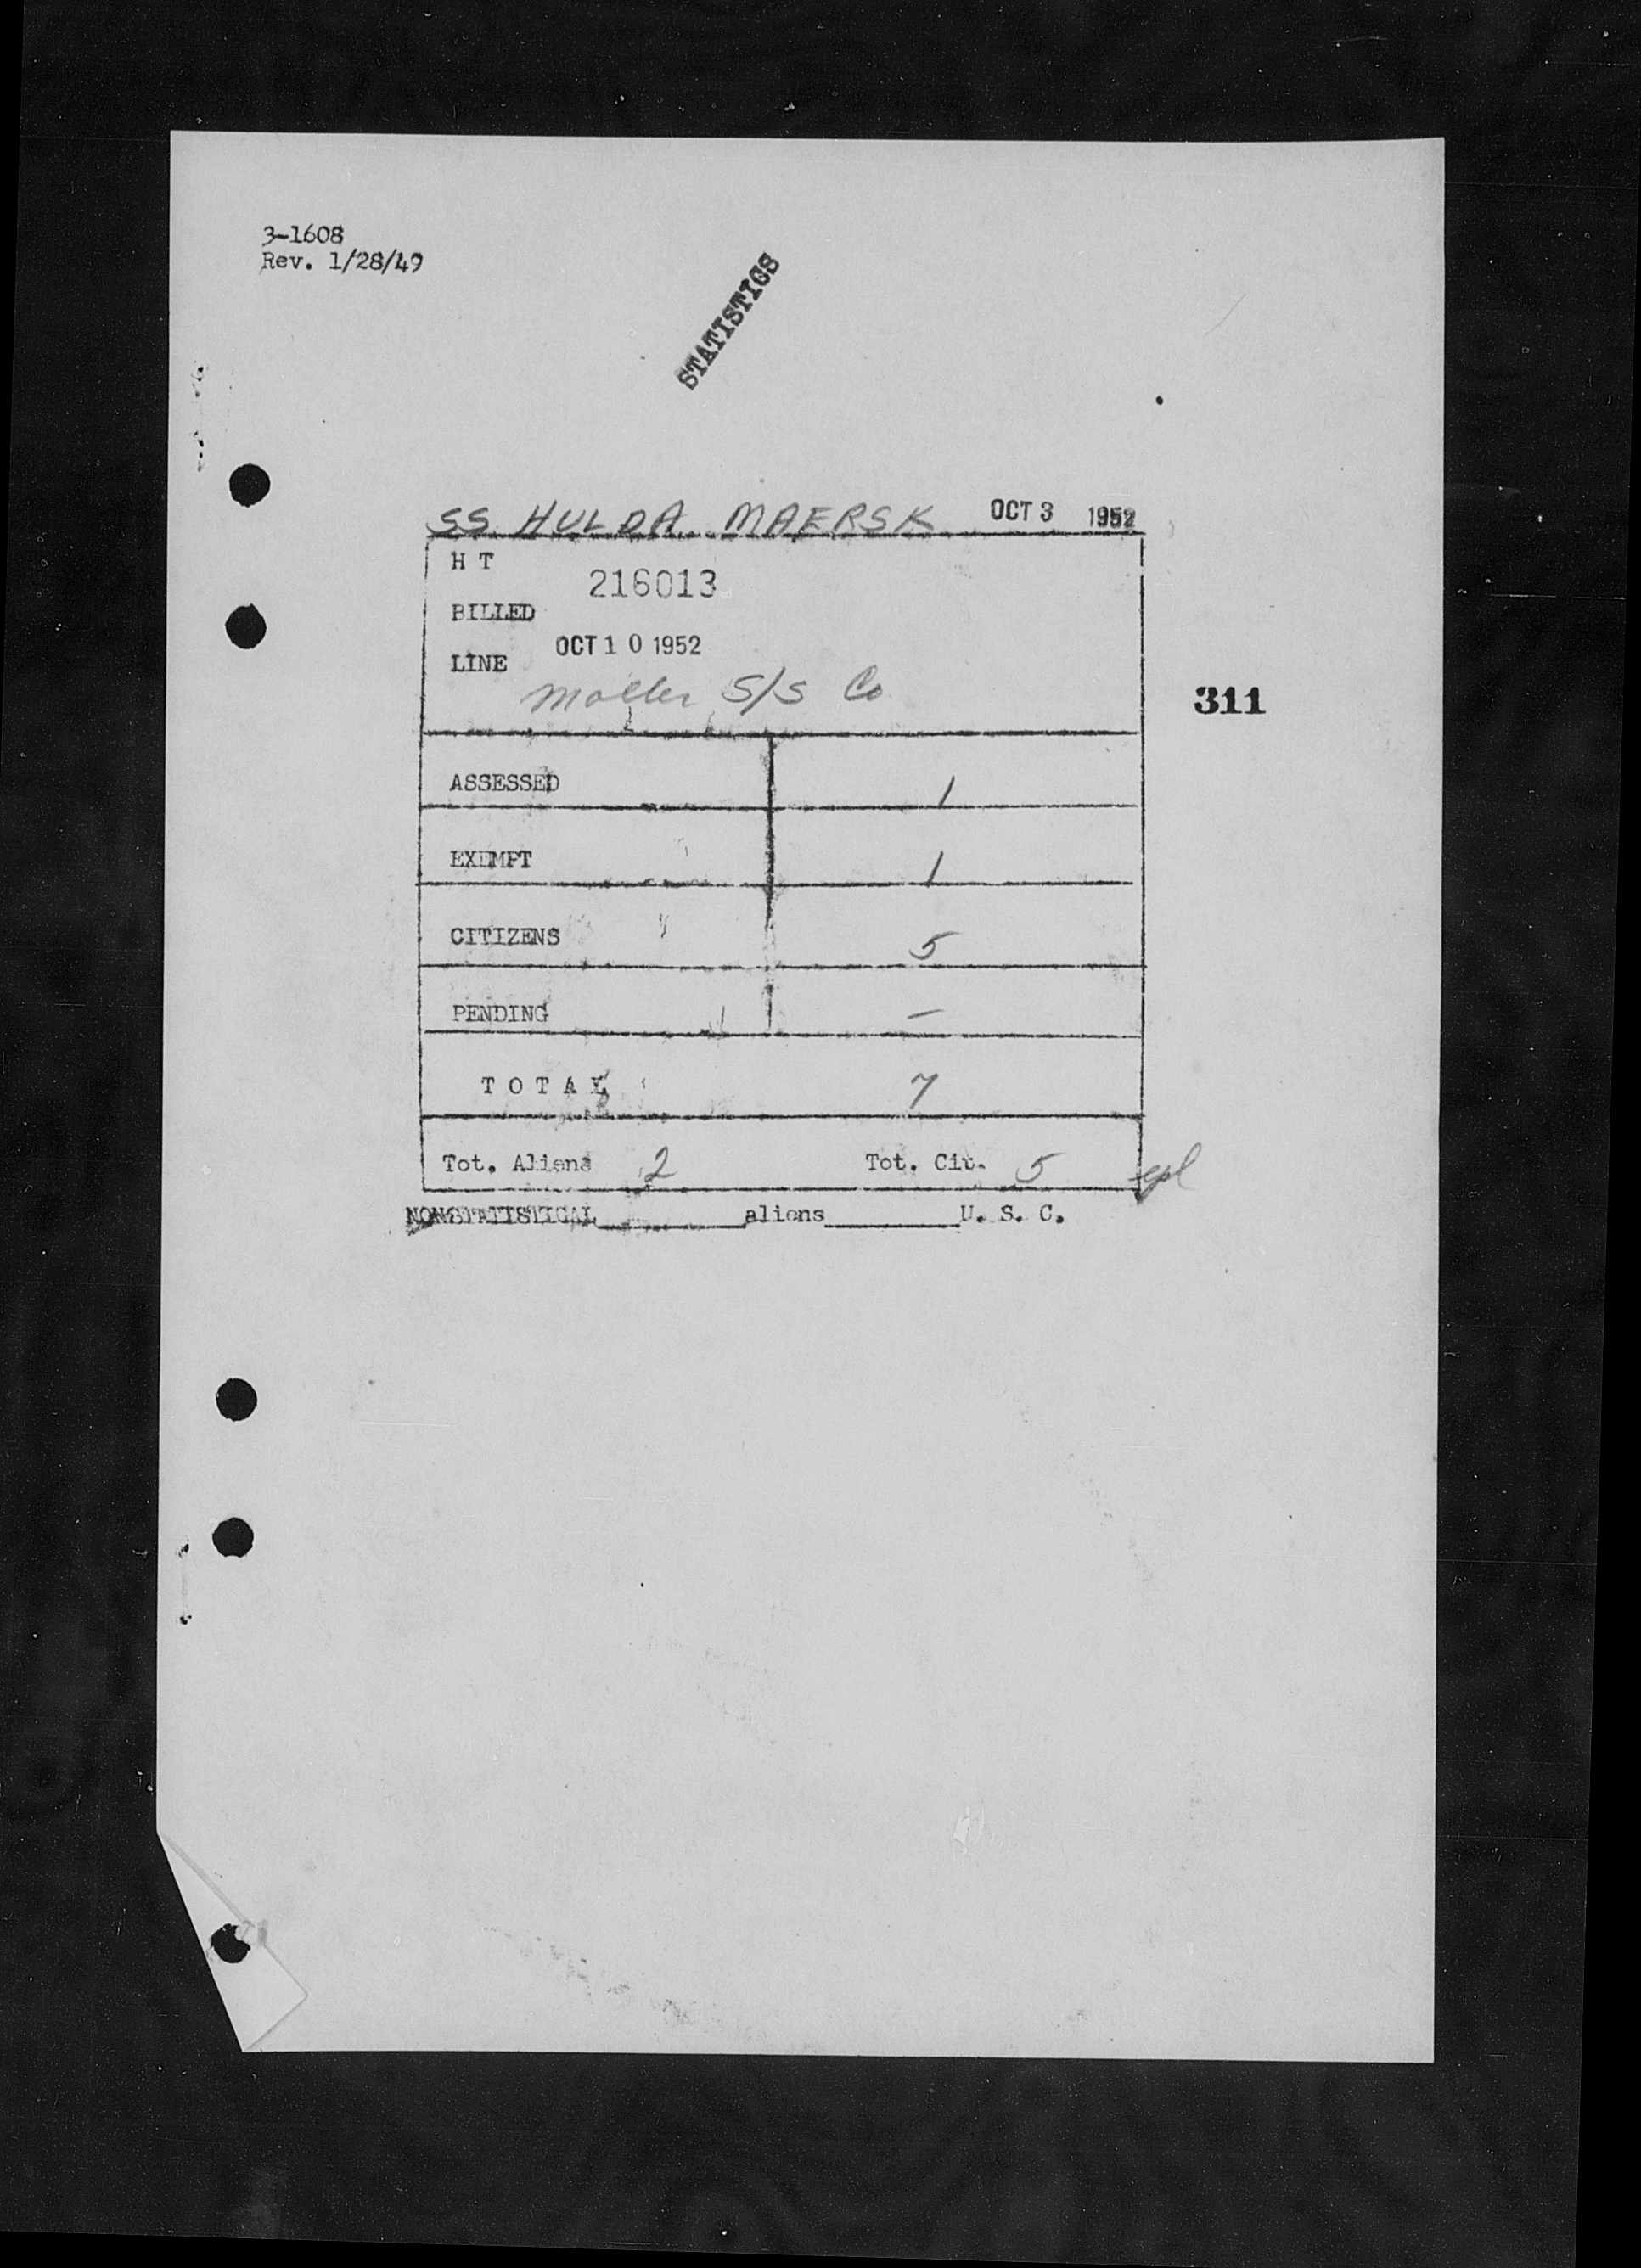 3-1608
Rev. 1/28/49
STATISTICS
SS HULDA MAERSK OCT 3 1952
H T
216013
BILLED
OCT 10 1952
LINE
Moller S/S Co
311
ASSESSED 1
EXEMPT 1
CITIZENS 5
PENDING –
TOTAL 7
Tot. Aliens 2 Tot. Cit. 5
NONSTATISTICAL________aliens________U. S. C.